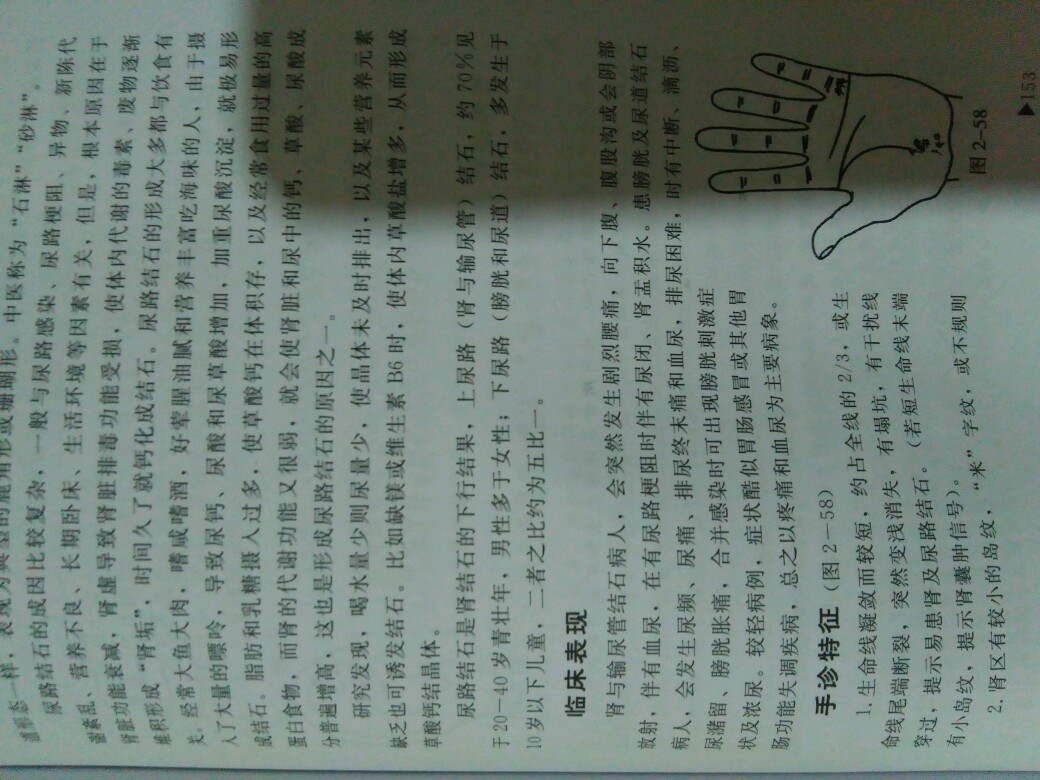 一样，表现为典型的鹿角形或珊瑚形。中医称为“石淋”“砂淋”。
尿路结石的成因比较复杂，一般与尿路感染、尿路梗阻、异物、新陈代
谢紊乱、营养不良、长期卧床、生活环境等因素有关，但是，根本原因在于
肾脏功能衰减，肾虚导致肾脏排毒功能受损，使体内代谢的毒素、废物逐渐
堆积形成“肾垢”，时间久了就钙化成结石。尿路结石的形成大多都与饮食有
关。
经常大鱼大肉，嗜咸嗜酒，好荤腥油腻和营养丰富吃海味的人，由于摄
入了大量的嘌呤，导致尿钙、尿酸和尿草酸增加，加重尿酸沉淀，就极易形
成结石。脂肪和乳糖摄入过多，使草酸钙在体积存，以及经常食用过量的高
蛋白食物，而肾的代谢功能又很弱，就会使肾脏和尿中的钙、草酸、尿酸成
分普遍增高，这也是形成尿路结石的原因之一。
研究发现，喝水量少则尿量少，使晶体未及时排出，以及某些营养元素
缺乏也可诱发结石。比如缺镁或维生素B6时，使体内草酸盐增多，从而形成
草酸钙结晶体。
尿路结石是肾结石的下行结果，上尿路（肾与输尿管）结石，约70%见
于20－40岁青壮年，男性多于女性；下尿路（膀胱和尿道）结石，多发生于
10岁以下儿童，二者之比约为五比一。
临床表现
肾与输尿管结石病人，会突然发生剧烈腰痛，向下腹、腹股沟或会阴部
放射，伴有血尿，在有尿路梗阻时伴有尿闭、肾盂积水。患膀胱及尿道结石
病人，会发生尿频、尿痛、排尿终末痛和血尿，排尿困难，时有中断、滴沥、
尿潴留、膀胱胀痛，合并感染时可出现膀胱刺激症
状及浓尿。较轻病例，症状酷似胃肠感冒或其他胃
肠功能失调疾病，总之以疼痛和血尿为主要病象。
手诊特征（图2－58）
1. 生命线凝敛而较短，约占全线的2/3，或生
命线尾端断裂，突然变浅消失，有塌坑，有干扰线
穿过，提示易患肾及尿路结石。（若短生命线末端
有小岛纹，提示肾囊肿信号）。
2. 肾区有较小的岛纹，“米”字纹，或不规则
图2－58
▶153